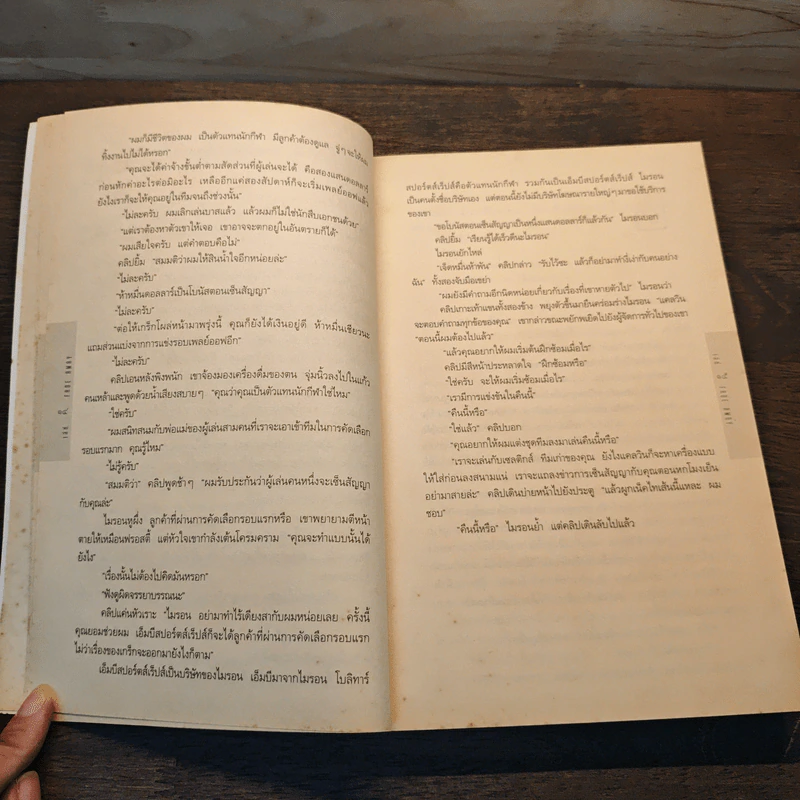 "ผมก็มีชีวิตของผม เป็นตัวแทนนักกีฬา มีลูกค้าต้องดูแล จู่ๆจะให้
ทิ้งงานไปไม่ได้หรอก"
"คุณจะได้ค่าจ้างขั้นต่ำตามสัดส่วนที่ผู้เล่นจะได้ คือสองแสนดอลลาร์
ก่อนหักค่าอะไรต่อมิอะไร เหลืออีกแค่สองสัปดาห์ก็จะเริ่มเพลย์ออฟแล้ว
ยังไงเราก็จะให้คุณอยู่ในทีมจนถึงช่วงนั้น"
"ไม่ละครับ ผมเลิกเล่นบาสแล้ว แล้วผมก็ไม่ใช่นักสืบเอกชนด้วย"
"แต่เราต้องหาตัวเขาให้เจอ เขาอาจจะตกอยู่ในอันตรายก็ได้"
"ผมเสียใจครับ แต่คำตอบคือไม่"
คลิปยิ้ม "สมมติว่าผมให้สินน้ำใจอีกหน่อยล่ะ"
"ไม่ละครับ"
"ห้าหมื่นดอลลาร์เป็นโบนัสตอนเซ็นสัญญา"
"ไม่ละครับ"
"ต่อให้เกร็กโผล่หน้ามาพรุ่งนี้ คุณก็ยังได้เงินอยู่ดี ห้าหมื่นเชียวนะ
แถมส่วนแบ่งจากการแข่งรอบเพลย์ออฟอีก"
"ไม่ละครับ"
คลิปเอนหลังพิงพนัก เขาจ้องมองเครื่องดื่มของตน จุ่มนิ้วลงไปในแก้ว
คนเหล้าและพูดด้วยน้ำเสียงสบายๆ "คุณว่าคุณเป็นตัวแทนนักกีฬาใช่ไหม"
"ใช่ครับ"
"ผมสนิทสนมกับพ่อแม่ของผู้เล่นสามคนที่เราจะเอาเข้าทีมในการคัดเลือก
รอบแรกมาก คุณรู้ไหม"
"ไม่รู้ครับ"
"สมมติว่า" คลิปพูดช้าๆ "ผมรับประกันว่าผู้เล่นคนหนึ่งจะเซ็นสัญญา
กับคุณล่ะ"
ไมรอนหูผึ่ง ลูกค้าที่ผ่านการคัดเลือกรอบแรกหรือ เขาพยายามตีหน้า
ตายให้เหมือนฟรอสตี้ แต่หัวใจเขากำลังเต้นโครมคราม "คุณจะทำแบบนั้นได้
ยังไง"
"เรื่องนั้นไม่ต้องไปคิดมันหรอก"
"ฟังดูผิดจรรยาบรรณนะ"
คลิปแค่นหัวเราะ "ไมรอน อย่ามาทำไร้เดียงสากับผมหน่อยเลย ครั้งนี้
คุณยอมช่วยผม เอ็มบีสปอร์ตส์เร็ปส์ก็จะได้ลูกค้าที่ผ่านการคัดเลือกรอบแรก
ไม่ว่าเรื่องของเกร็กจะออกมายังไงก็ตาม"
เอ็มบีสปอร์ตส์เร็ปส์เป็นบริษัทของไมรอน เอ็มบีมาจากไมรอน โบลิทาร์
สปอร์ตส์เร็ปส์คือตัวแทนนักกีฬา รวมกันเป็นเอ็มบีสปอร์ตส์เร็ปส์ ไมรอน
เป็นคนตั้งชื่อบริษัทเอง แต่ตอนนี้ยังไม่มีบริษัทโฆษณารายใหญ่ๆมาขอใช้บริการ
ของเขา
"ขอโบนัสตอนเซ็นสัญญาเป็นหนึ่งแสนดอลลาร์ก็แล้วกัน" ไมรอนบอก
คลิปยิ้ม "เรียนรู้ได้เร็วดีนะไมรอน"
ไมรอนยักไหล่
"เจ็ดหมื่นห้าพัน" คลิปกล่าว "รับไว้ซะ แล้วก็อย่ามาทำขี้เก่งกับคนอย่าง
ฉัน" ทั้งสองจับมือเขย่า
"ผมยังมีคำถามอีกนิดหน่อยเกี่ยวกับเรื่องที่เขาหายตัวไป" ไมรอนว่า
คลิปเกาะเท้าแขนทั้งสองข้าง พยุงตัวขึ้นมายืนคร่อมร่างไมรอน "แคลวิน
จะตอบคำถามทุกข้อของคุณ" เขากล่าวขณะพยักพเยิดไปยังผู้จัดการทั่วไปของเขา
"ตอนนี้ผมต้องไปแล้ว"
"แล้วคุณอยากให้ผมเริ่มต้นฝึกซ้อมเมื่อไร"
คลิปมีสีหน้าประหลาดใจ "ฝึกซ้อมหรือ"
"ใช่ครับ จะให้ผมเริ่มซ้อมเมื่อไร"
"เรามีการแข่งขันในคืนนี้"
"คืนนี้หรือ"
"ใช่แล้ว" คลิปบอก
"คุณอยากให้ผมแต่งชุดทีมลงมาเล่นคืนนี้หรือ"
"เราจะเล่นกับเซลติกส์ ทีมเก่าของคุณ ยังไงแคลวินก็จะหาเครื่องแบบ
ให้ใส่ก่อนลงสนามแน่ เราจะแถลงข่าวการเซ็นสัญญากับคุณตอนหกโมงเย็น
อย่ามาสายล่ะ" คลิปเดินบ่ายหน้าไปยังประตู "แล้วผูกเน็คไทเส้นนี้แหละ ผม
ชอบ"
"คืนนี้หรือ" ไมรอนย้ำ แต่คลิปเดินลับไปแล้ว